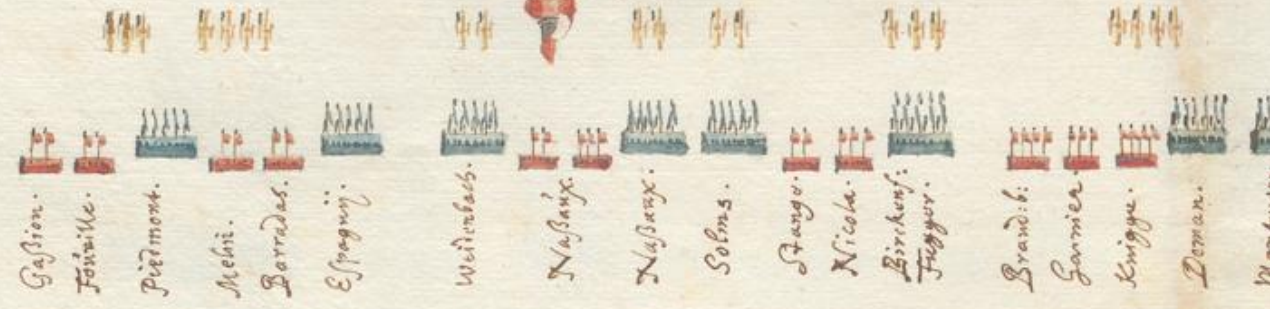 Gaßion.
Fourille.
Piedmont.
Mehii.
Barradas.
Espagnij.
Weidenbach.
Naßaux.
Naßaux.
Solms.
Stango.
Nicola.
Birckenf:
Fugger.
Brand:b:
Garnier.
Knigge.
Doman.